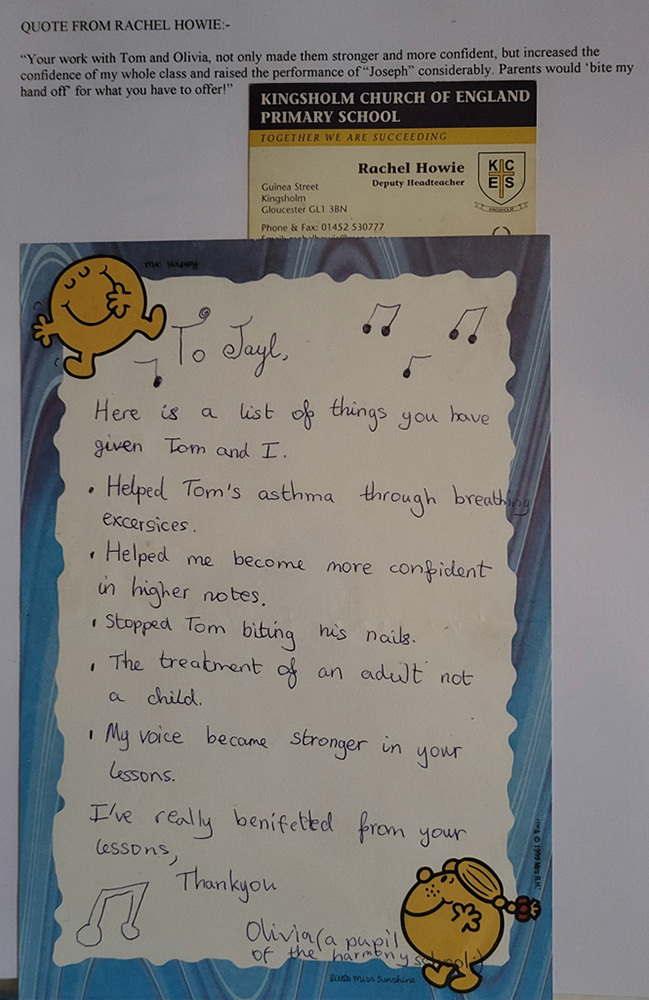 QUOTE FROM RACHEL HOWIE:-
“Your work with Tom and Olivia, not only made them stronger and more confident, but increased the
confidence of my whole class and raised the performance of “Joseph” considerably. Parents would ‘bite my
hand off’ for what you have to offer!”
KINGSHOLM CHURCH OF ENGLAND
PRIMARY SCHOOL
TOGETHER WE ARE SUCCEEDING
Rachel Howie
Deputy Headteacher
K C
E S
KINGSHOLM
Guinea Street
Kingsholm
Gloucester GL1 3BN
Phone & Fax: 01452 530777
Mr. Happy
To Jayl,
Here is a list of things you have
given Tom and I.
• Helped Tom's asthma through breathing
excersices.
• Helped me become more confident
in higher notes.
• Stopped Tom biting his nails.
• The treatment of an adult not
a child.
• My voice became stronger in your
lessons.
I've really benifetted from your
lessons,
Thankyou
Olivia (a pupil
of the harmony school)
Little Miss Sunshine